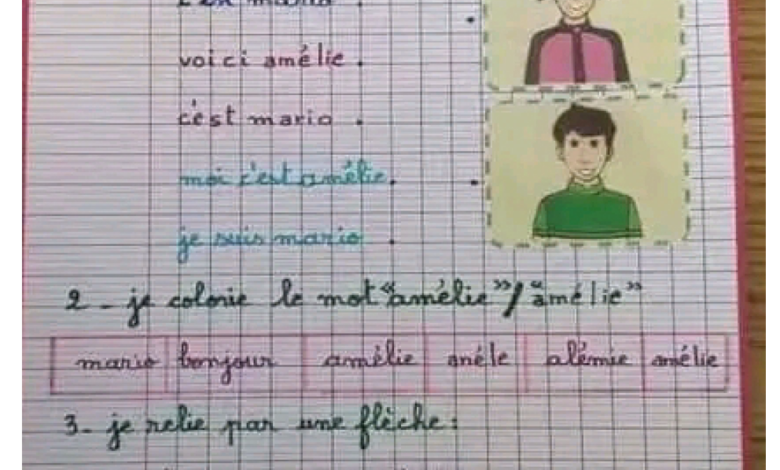 mario .
voici amélie .
c'est mario .
moi c'est amélie.
je suis mario .
2 - je colorie le mot "amélie" / "amélie"
mario bonjour amélie anéle alémie amélie
3- je relie par une flèche :